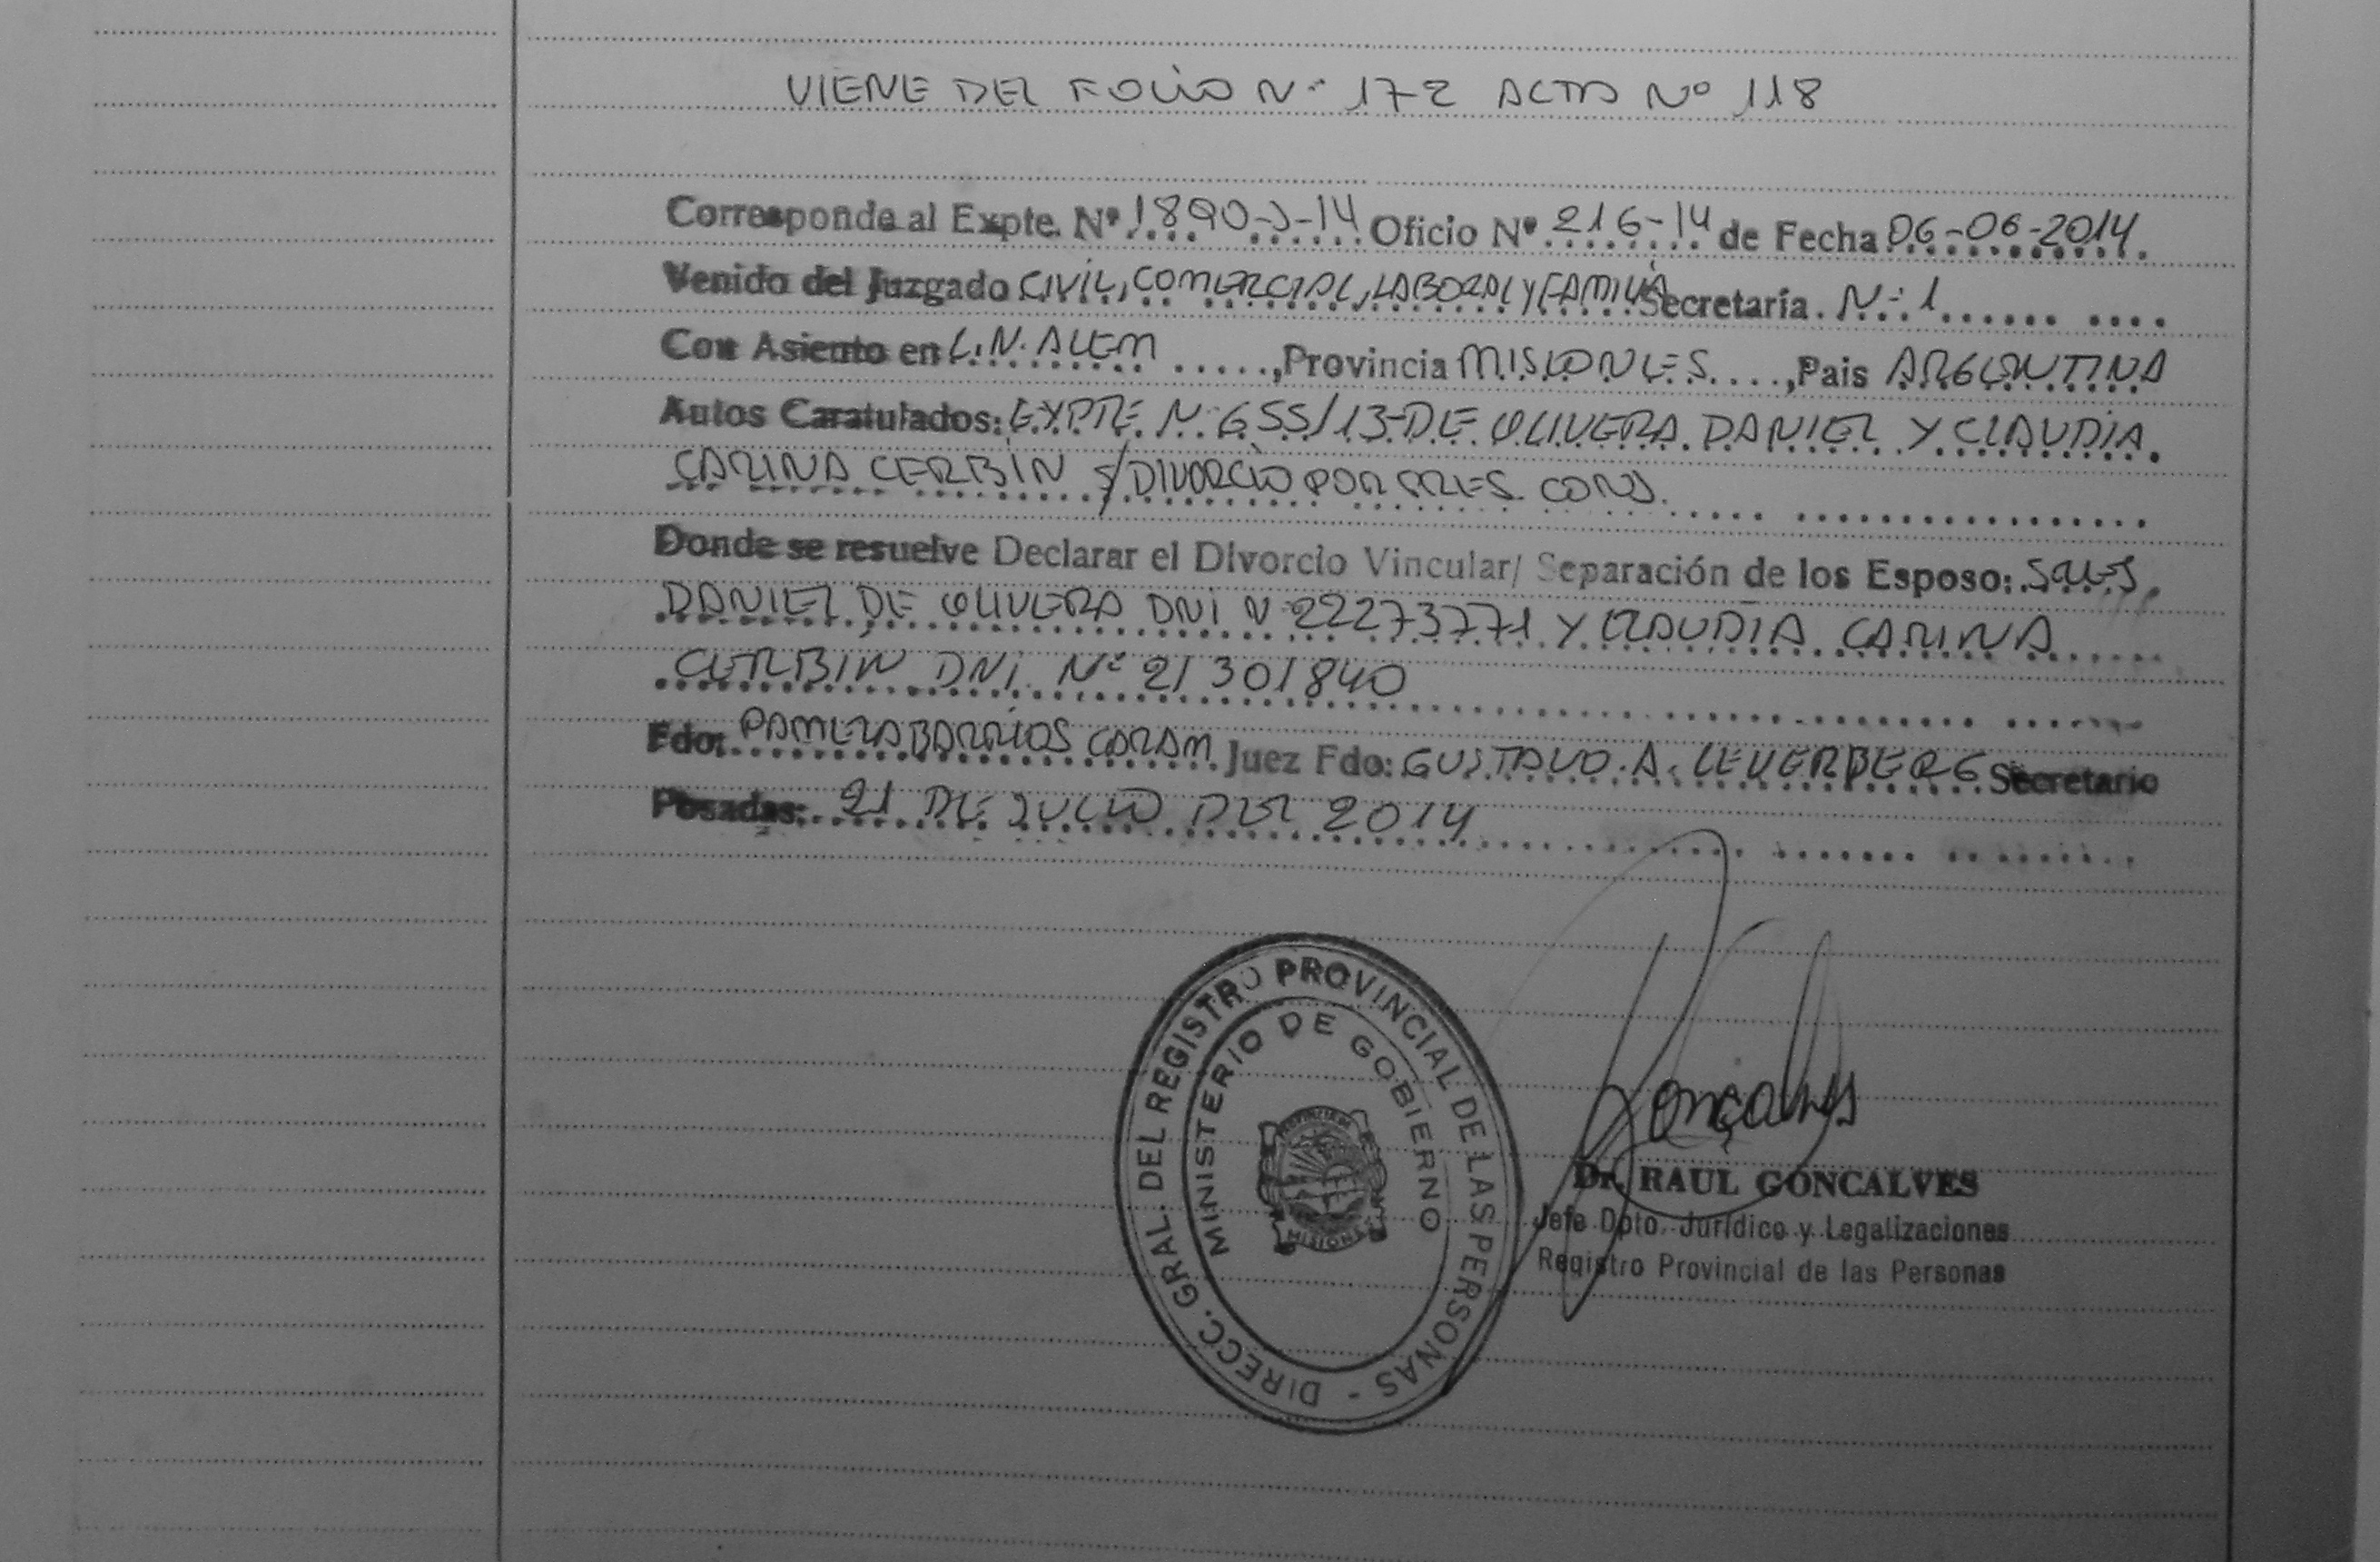 VIENE DEL FOLIO Nº 172 ACTA Nº 118
Corresponde al Expte. Nº 1890-J-14 Oficio Nº 216-14 de Fecha 06-06-2014
Venido del Juzgado CIVIL, COMERCIAL, LABORAL Y FAMILIA Secretaría. Nº 1
Con Asiento en L.N. ALEM, Provincia MISIONES, Pais ARGENTINA
Autos Caratulados: EXPTE Nº 655/13-DE OLIVERA DANIEL Y CLAUDIA
CARINA CERBIN S/DIVORCIO POR PRES. CONJ.
Donde se resuelve Declarar el Divorcio Vincular/ Separación de los Esposo: SRES.
DANIEL DE OLIVERA DNI Nº 22273771 Y CLAUDIA CARINA
CERBIN DNI Nº 21301840
Fdo: PAMELA BARRIOS CARAM Juez Fdo: GUSTAVO A. LEVERBERG Secretario
Posadas: 21 DE JULIO DEL 2014
DIRECC. GRAL. DEL REGISTRO PROVINCIAL DE LAS PERSONAS -
MINISTERIO DE GOBIERNO
PROVINCIA DE
MISIONES
Gonçalves
Dr. RAUL GONCALVES
Jefe Dpto. Jurídico y Legalizaciones
Registro Provincial de las Personas